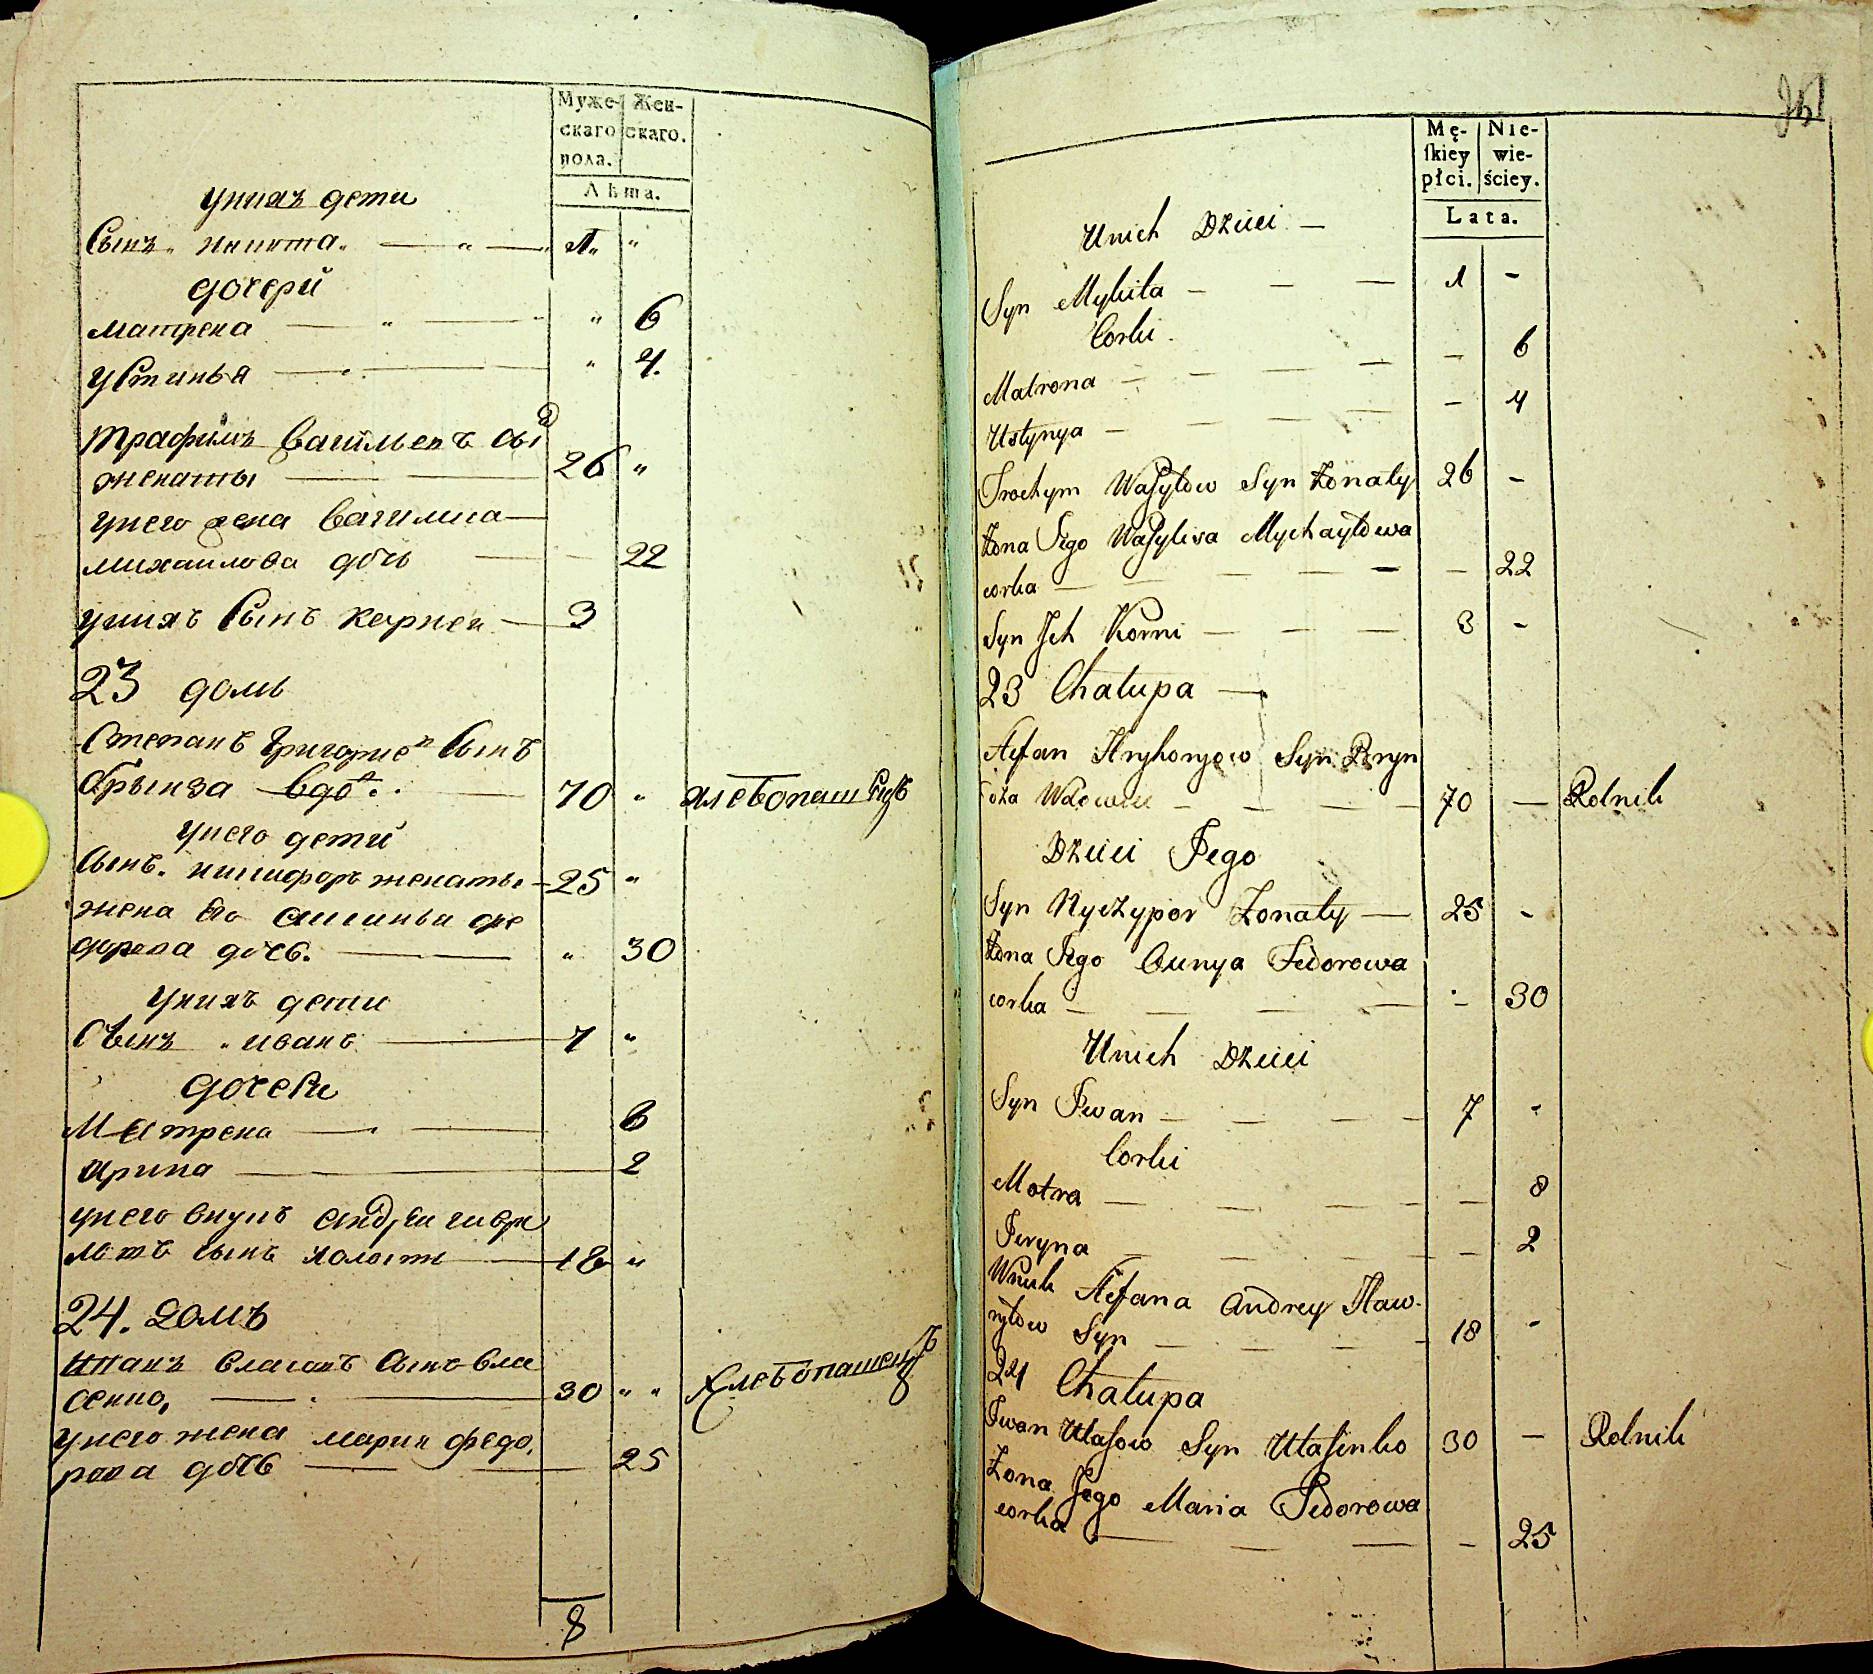 Муже-
скаго
пола.
Жен-
скаго.
Лѣта.
унихъ дети
Сынъ никита 1
дочери
матрена 6
устинья 4.
трафимъ васильевъ сы
женаты 26
унего жена василиса
михаилова дочь 22
унихъ сынъ карней 3
23 домъ
Степанъ григорие сынъ
брынза вдо 70 хлебопашецъ
унего дети
Сынъ. никифоръ женаты 25
жена его
дорова дочь. 30
унихъ дети
Сынъ иванъ 7
дочери
Матрена 8
ирина 2
унего внукъ андреи гаври
ловъ сынъ холосты 18
24. домъ
иванъ власовъ сынъ вла
сенко, 30 хлебопашецъ
унего жена мария федо,
рова дочь 25
8
Mę-
ſkiey
płci.
Nie-
wie-
ściey.
Lata.
Unich Dzieci —
Syn Mykita — — — 1 -
Corki
Matrona — — — - 6
Ustynya — — — - 4
Trochym Wasylow Syn Żonaty 26 -
Żona Jego Wasylisa Mychayłowa
corka — — — - 22
Syn Jch Korni — — — 3 -
23 Chałupa —
Stefan Hryhoryow Syn Bryn
70 — Rolnik
Dzieci Jego
Syn Nyczypor Żonaty — 25 -
Żona Jego Fedorowa
corka — — — - 30
Unich Dzieci
Syn Iwan — — — 7 -
Corki
Motra — — — — 8
Iryna — — — — 2
Wnuk Stefana Andrey Haw-
ryłow Syn — — — 18 -
24 Chałupa
Iwan Ułasow Syn Ułasinko 30 — Rolnik
Żona Jego Maria Fedorowa
corka — — — - 25